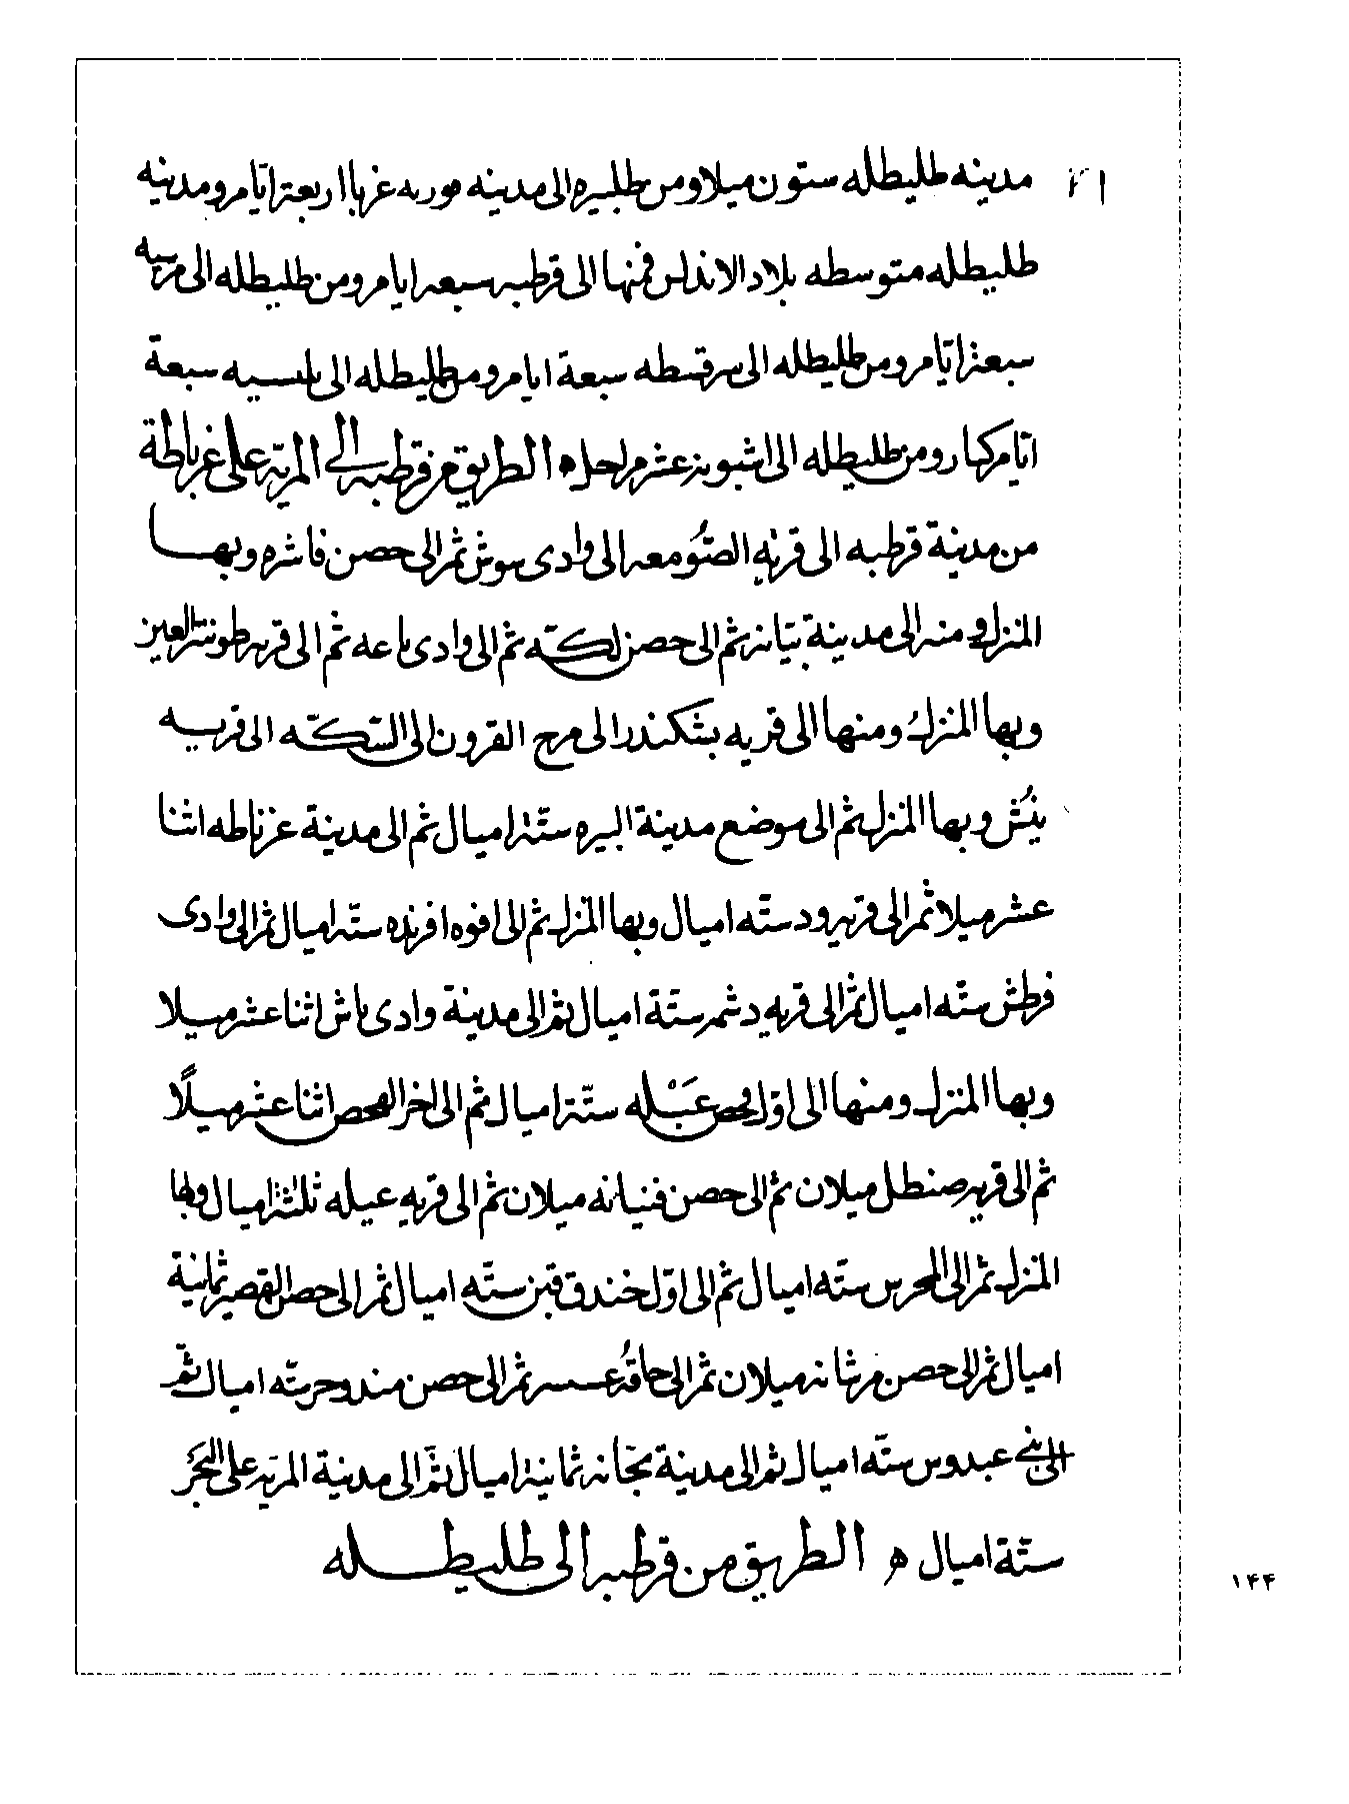 مدينه طليطله ستون ميلا ومن طلبيره الى مدينه موريه غربا اربعة ايّام ومدينه
طليطله متوسطه بلاد الاندلس فمنها الى قرطبه سبعه ايام ومن طليطله الى مرسيه
سبعة ايّام ومن طليطله الى سرقسطه سبعة ايام ومن طليطله الى بلنسيه سبعة
ايّام كبار ومن طليطله الى اشبونه عشر مراحل ه الطريق من قرطبه الى المريّه على غرناطة
من مدينة قرطبه الى قريه الصّومعه الى وادى سوش ثم الى حصن قاشره وبهـا
المنزل ومنه الى مدينة بيّانه ثم الى حصن لكّه ثم الى وادى باعه ثم الى قريه العين
وبها المنزل ومنها الى قريه بشكندر الى مرج القرون الى السّكّه الى قريـه
ينُش وبها المنزل ثم الى موضع مدينة البيره ستّة اميال ثم الى مدينة غرناطه اثنا
عشر ميلا ثم الى قريه ود ستّه اميال وبها المنزل ثم الى افوه افرنده ستّه اميال ثم الى وادى
فرطش ستّه اميال ثم الى قريه دشمر ستّة اميال ثم الى مدينة وادى ياش اثنا عشر ميـلا
وبها المنزل ومنها الى اوّل فحص عَبْله ستّة اميال ثم الى اخر الفحص اثنا عشر ميـلًا
ثم الى قريه صنطل ميلان ثم الى حصن فنيانه ميلان ثم الى قريه عبله ثلثة اميال وبها
المنزل ثم الى المحرس ستّه اميال ثم الى اوّل خندق قبن ستّه اميال ثم الى حصن القصير ثمانية
اميال ثم الى حصن مرشانه ميلان ثم الى ثم الى حصن مندوجر ستّه اميال ثمّ
الى بنى عبدوس ستّه اميال ثم الى مدينة بجّانه ثمانية اميال ثمّ الى مدينة المريّه على البحَر
ستّة اميال ه الطريق من قرطبه الى طليطـله
١٤٤